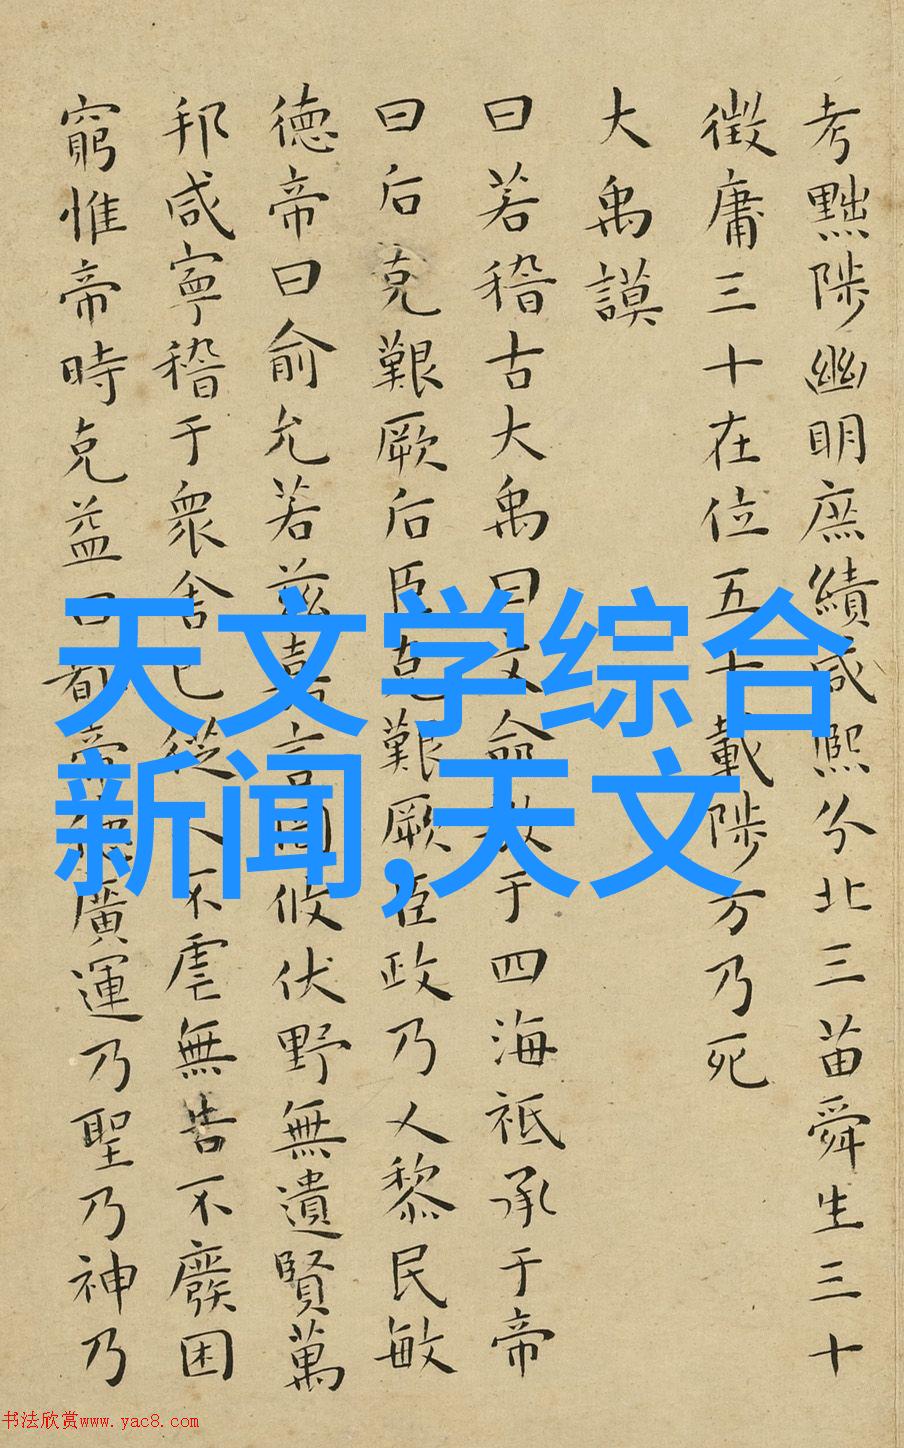 考黜陟幽明庶績咸熙分北三苗舜生三十
徵庸三十在位五十載陟方乃死
大禹謨
曰若稽古大禹曰文命敷于四海祗承于帝
曰后克艱厥后臣克艱厥臣政乃乂黎民敏
德帝曰俞允若茲嘉言罔攸伏野無遺賢萬
邦咸寧稽于衆舍己從人不虐無告不廢困
窮惟帝時克益曰都帝德廣運乃聖乃神乃
天文学综合
新闻,天文
书法欣赏www.yac8.com